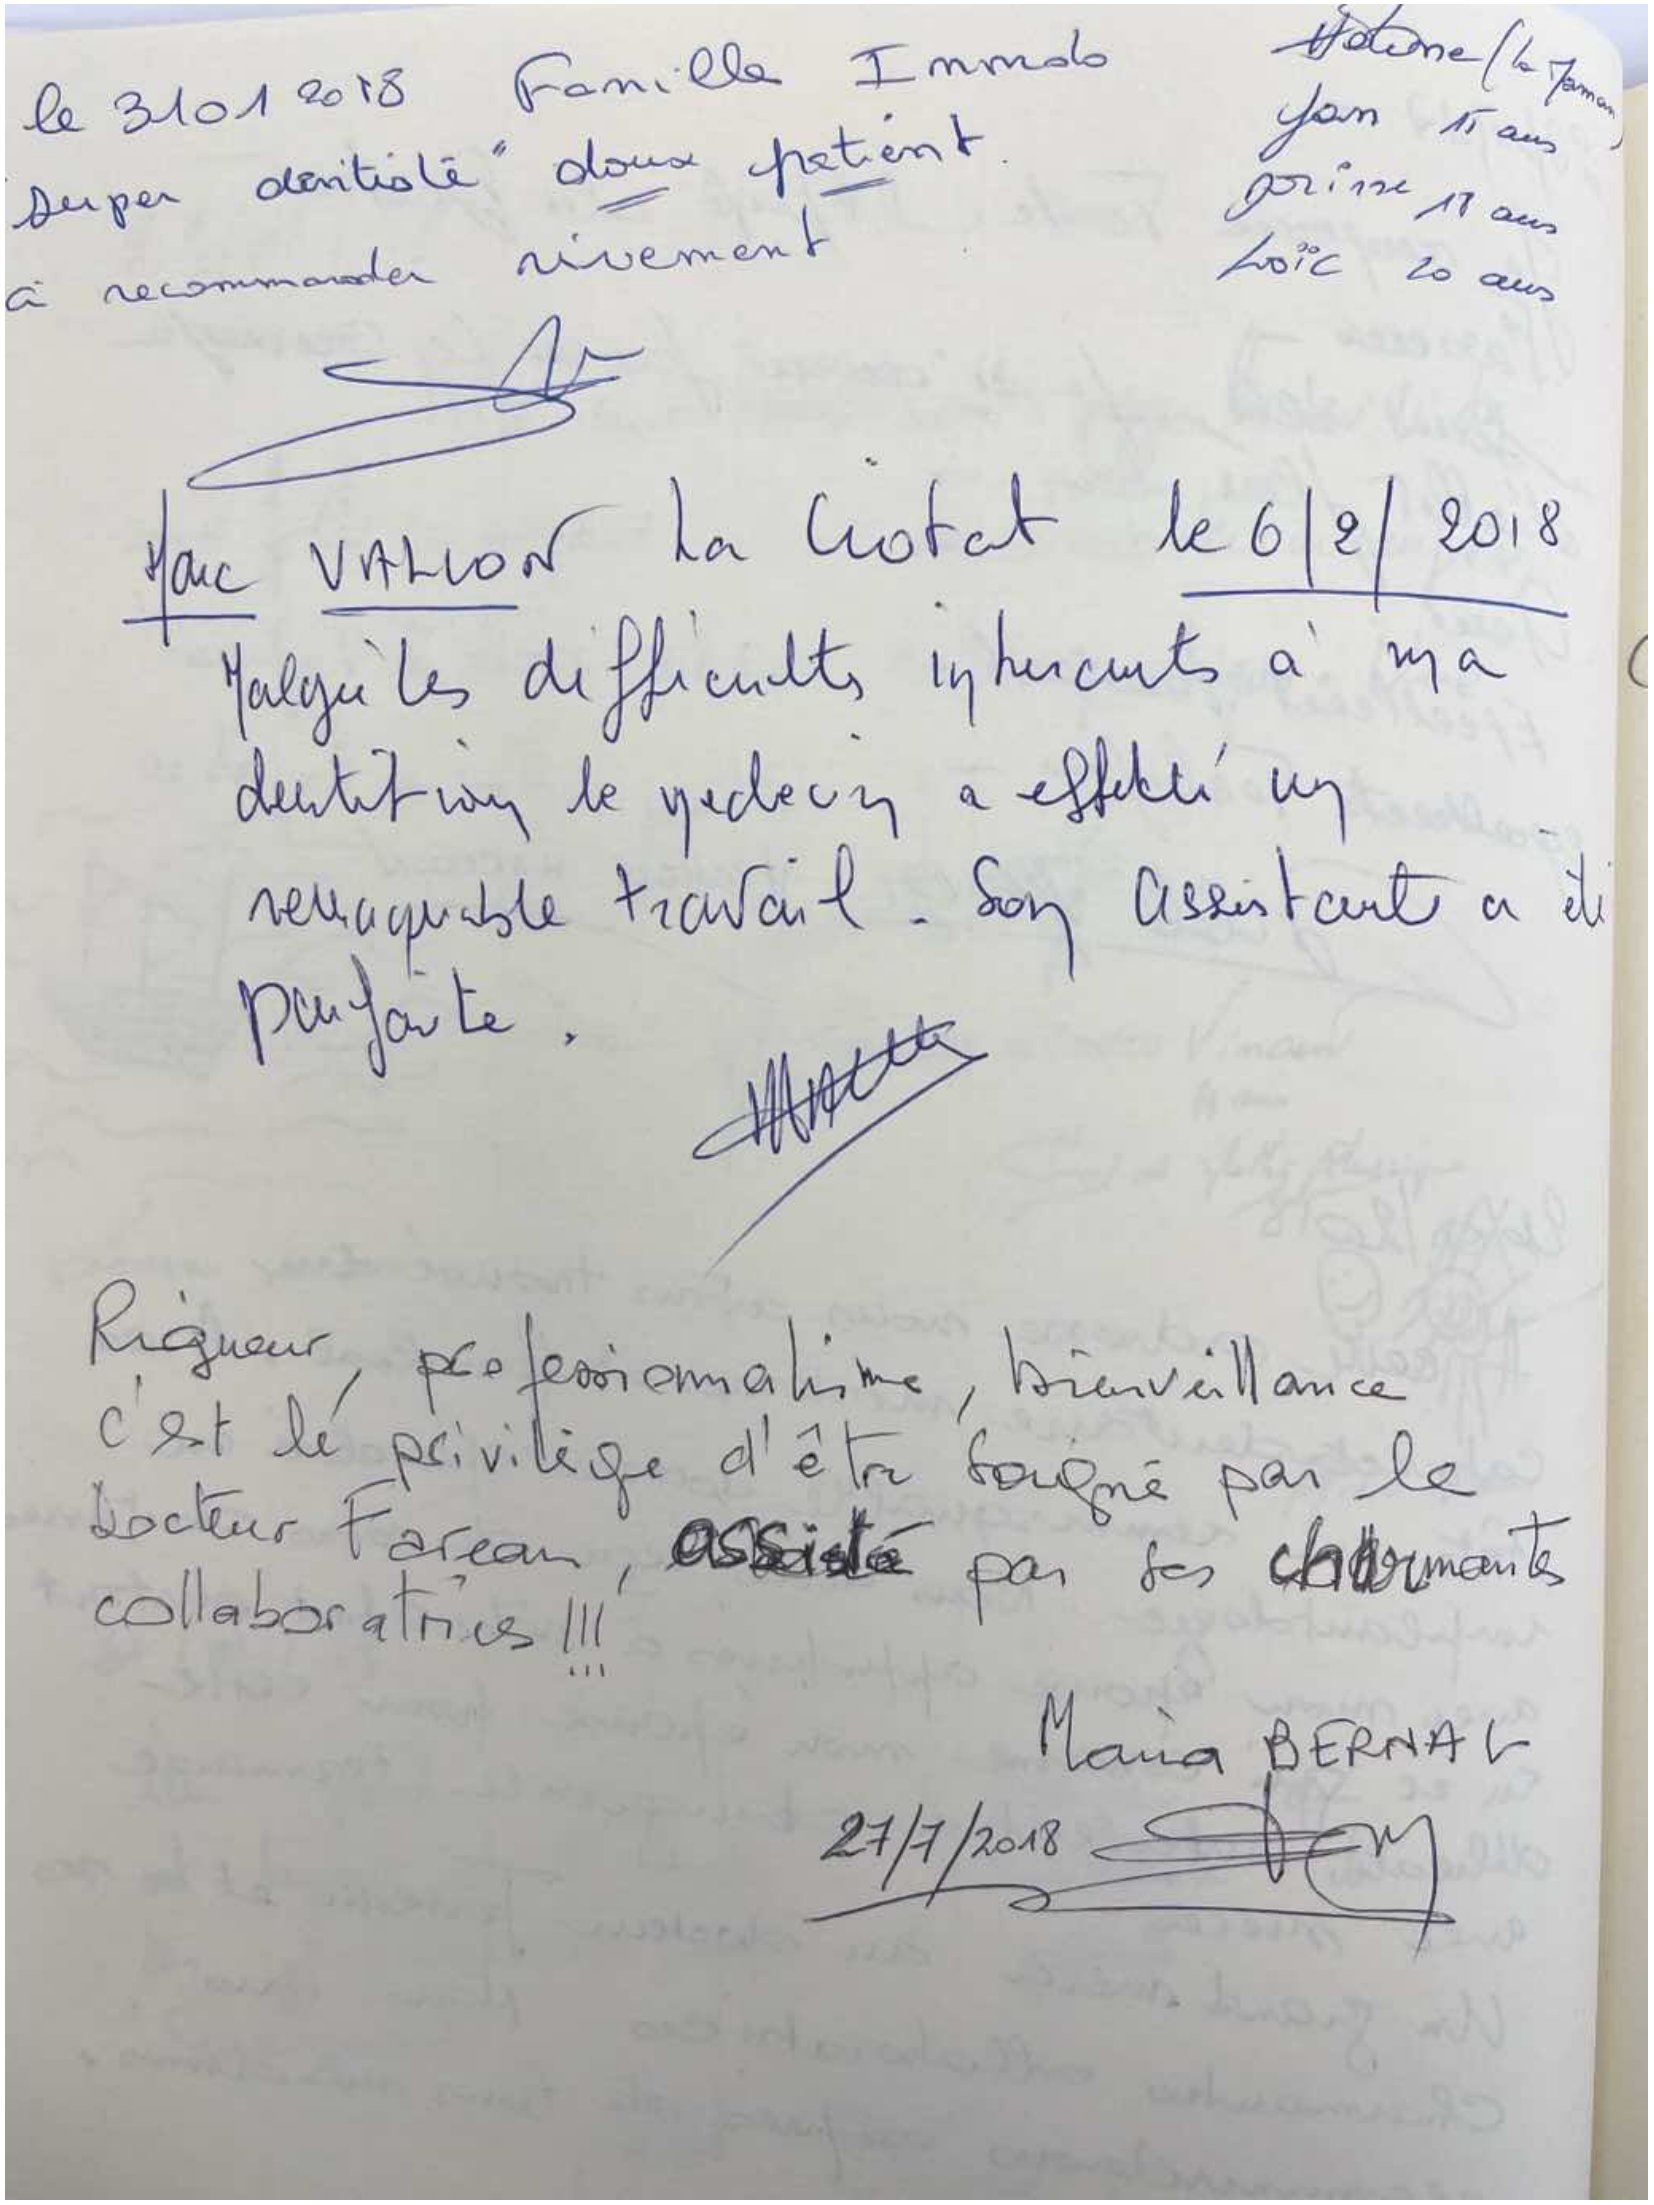 le 3101 2018 Famille Immolo
super dentiste" doux patient.
à recommander vivement
(la Maman)
Yan 15 ans
18 ans
Loïc 20 ans
Marc VALLON La Ciotat le 6/2/2018
Malgré les difficultés inhérents à ma
dentition le medecin a effectué un
remarquable travail. Son assistante a été
parfaite.
Rigueur, professionnalisme, bienveillance
c'est le privilège d'être soigné par le
Docteur Fareau, assisté par ses charmantes
collaboratrices !!!
Maria BERNAL
27/7/2018